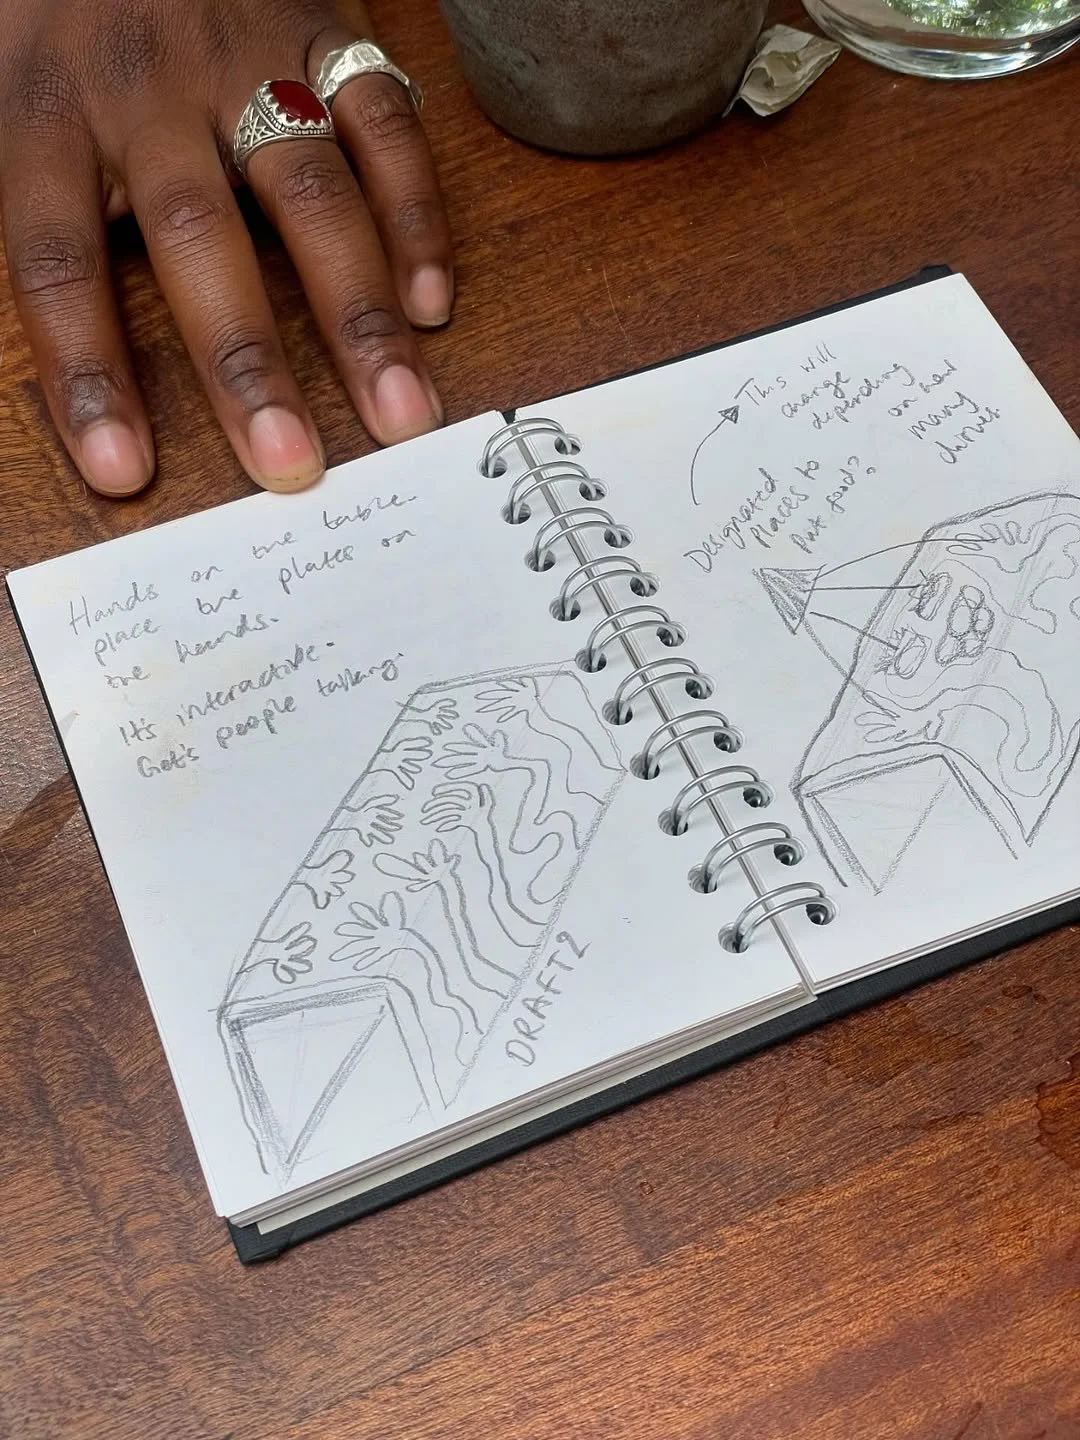 Hands on the table.
place the plates on
the hands.
It's interactive.
Get's people talking.
DRAFT 2
This will
change
depending
on how
many
chives
Designated
places to
put food?